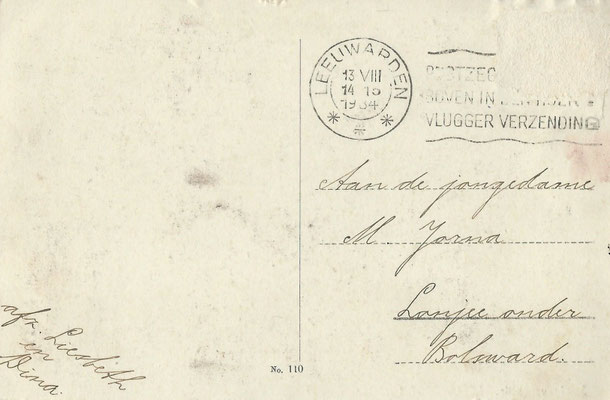 LEEUWARDEN
13 VIII
14 - 15
1934
BOVEN IN
VLUGGER VERZENDING
Aan de jongedame
M. Jorna
Lonjee onder
Bolsward.
afz. Liesbeth
en
Dina.
No. 110